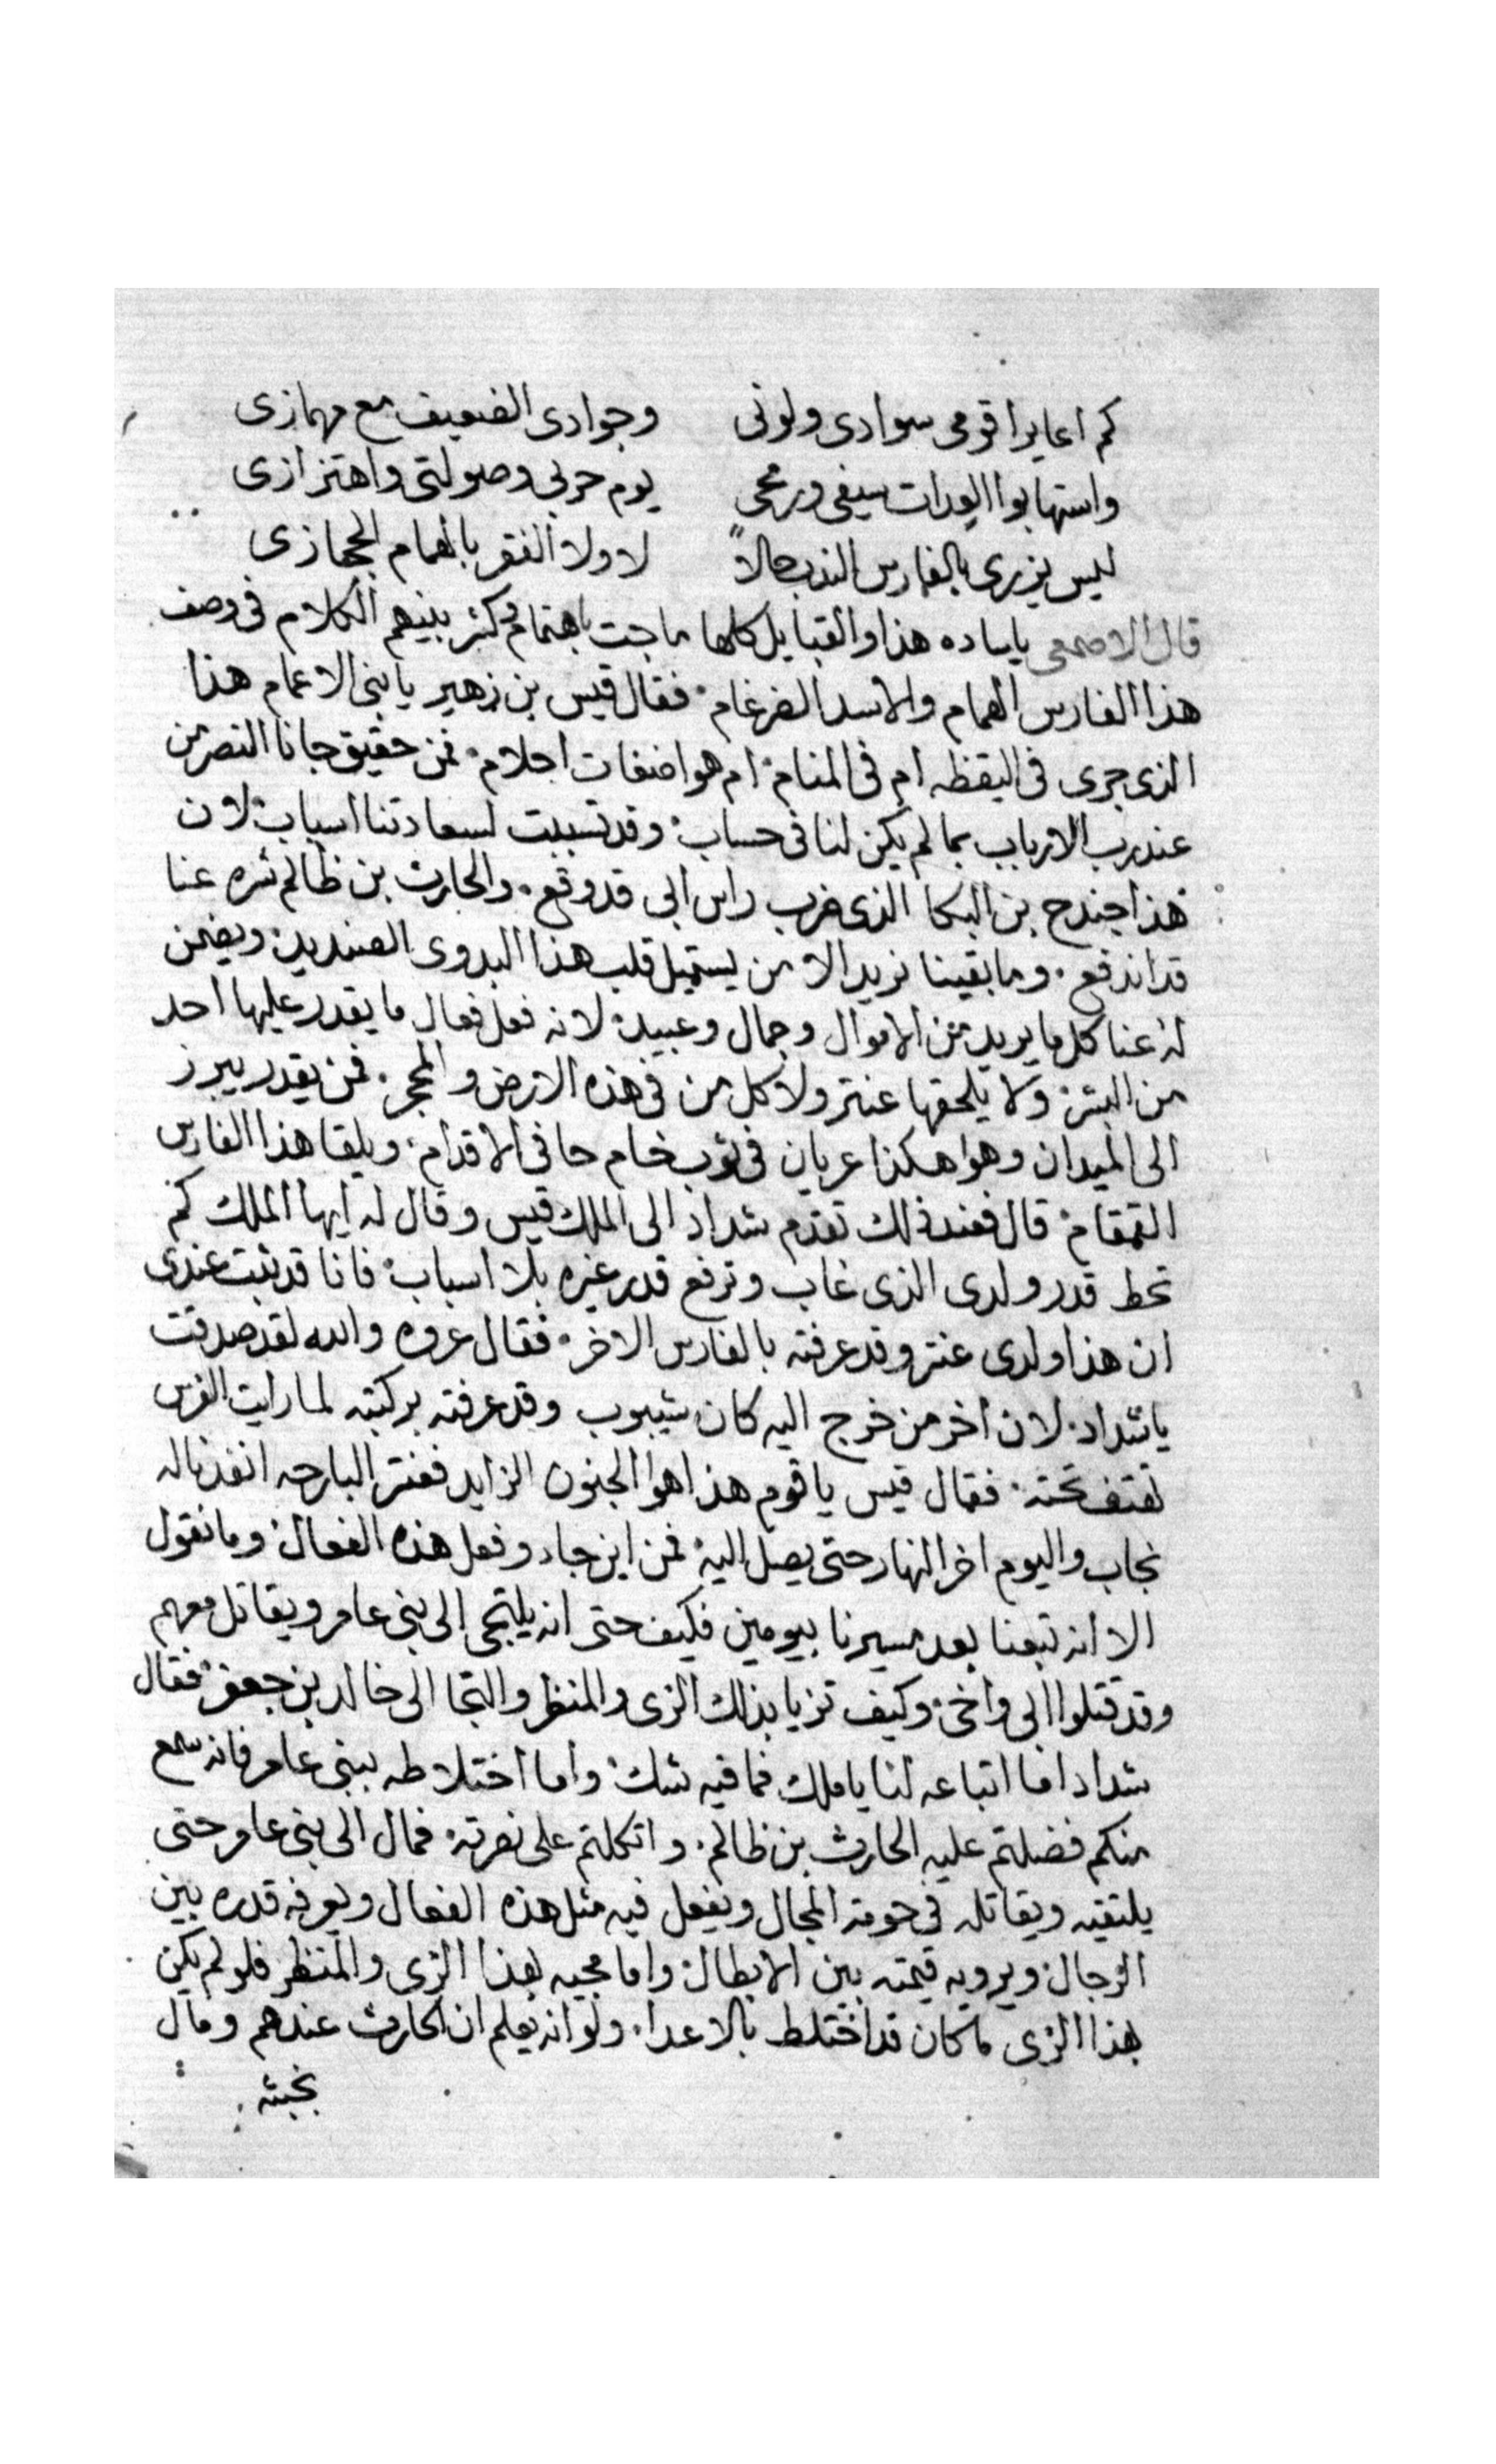 كم اعايرا قومى سوادى ولونى وجوادى الضعيف مع مهمازى
واستهابوا العداة سيفى ورمحى يوم حربى وصولتى واهتزازى
ليس يزرى بالفارس الندب حالاً لا ولا الفقر بالهمام الحجازى
قال الاصمعى ياساده هذا والقبايل كلها ماجت باهتمام وكثر بينهم الكلام فى وصف
هذا الفارس الهمام والاسد الضرغام فقال قيس بن زهير يا بنى الاعمام هذا
الذى جرى فى اليقظه ام فى المنام ام هو اضغات احلام فمن حقيق جانا النصر من
عند رب الارباب بما لم يكن لنا فى حساب وقد تسببت لسعادتنا اسباب لان
هذا جندح بن البكا الذى ضرب راس ابى قد وقع والحارث بن ظالم شره عنا
قد اندفع وما بقينا نريد الا من يستميل قلب هذا البدوى الصنديد ويضمن
له عنا كل ما يريد من الاموال وجمال وعبيد لانه فعل فعال ما يقدر عليها احد
من البشر ولا يلحقها عنتر ولا كل من فى هذه الارض والحجر فمن يقدر يبرز
الى الميدان وهوا هكذا عريان فى ثوب خام حافى الاقدام ويلقا هذا الفارس
القمقام قال فعند ذلك تقدم شداد الى الملك قيس وقال له ايها الملك كم
تحط قدر ولدى الذى غاب وترفع قدر غيره بلا اسباب فانا قد ثبت عندى
ان هذا ولدى عنتر وقد عرفته بالفارس الاخر فقال عروه والله لقد صدقت
ياشداد لان اخر من خرج اليه كان شيبوب وقد عرفته بركبته لما رايت الفرس
تقتف تحته فقال قيس ياقوم هذا هوا الجنون الزايد فعنتر البارحه انفذنا له
نجاب واليوم اخر النهار حتى يصل اليه فمن اين جاء وفعل هذه الفعال وما نقول
الا انه تبعنا بعد مسيرنا بيومين فكيف حتى انه يلتجى الى بنى عامر ويقاتل معهم
وقد قتلوا ابى واخى وكيف تزيا بذلك الزى والمنظر والتجا الى خالد بن جعفر فقال
شداد اما اتباعه لنا ياملك فما فيه شك واما اختلاطه ببنى عامر فانه سمع
منكم فضلتم عليه الحارث بن ظالم واتكلتم على نصرته فمال الى بنى عامر حتى
يلتقيه ويقاتله فى حومة المجال ويفعل فيه مثل هذه الفعال ويعرفه قدره بين
الرجال ويرويه قيمته بين الابطال واما مجيه بهذا الزى والمنظر فلو لم يكن
بهذا الزى ما كان قد اختلط بالاعداء ولو انه يعلم ان الحارث عندهم ومال